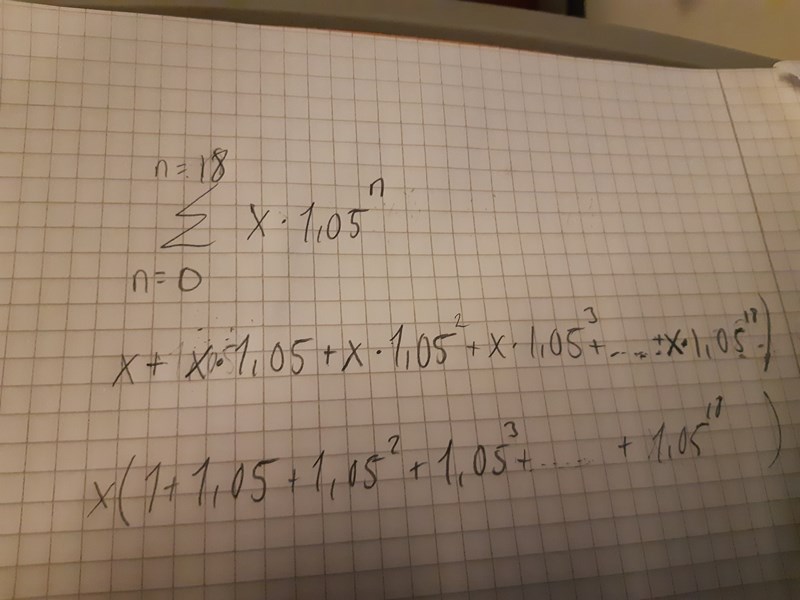 n=18
∑ x·1,05ⁿ
n=0
x + x·1,05 + x·1,05² + x·1,05³ + .... + x·1,05¹⁸)
x(1 + 1,05 + 1,05² + 1,05³ + ..... + 1,05¹⁸)